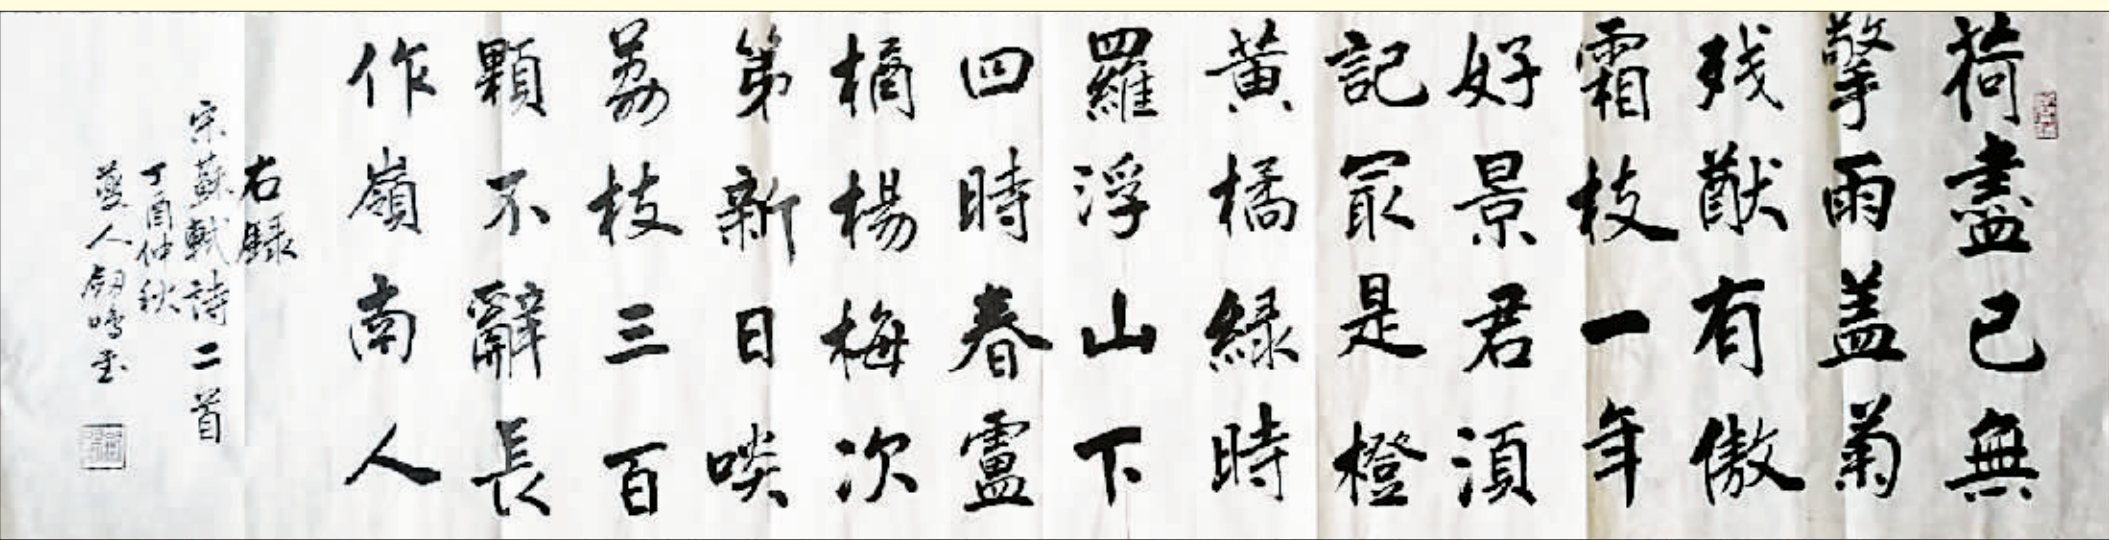 荷盡已無
擎雨盖菊
残猷有傲
霜枝一年
好景君湏
記冣是橙
黄橘緑時
羅浮山下
四時春盧
橘楊梅次
第新日啖
荔枝三百
顆不辭長
作嶺南人
右録
宋蘇軾詩二首
丁酉仲秋
人